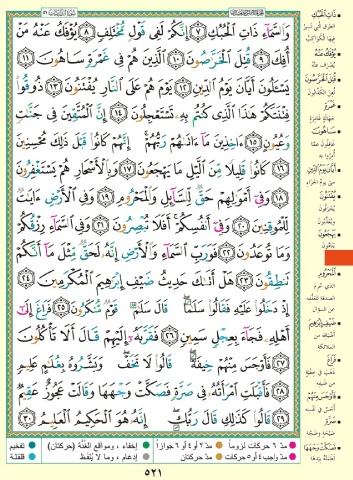 وَالسَّمَاءِ ذَاتِ الْحُبُكِ ٧ إِنَّكُمْ لَفِي قَوْلٍ مُّخْتَلِفٍ ٨ يُؤْفَكُ عَنْهُ مَنْ
أُفِكَ ٩ قُتِلَ الْخَرَّاصُونَ ١٠ الَّذِينَ هُمْ فِي غَمْرَةٍ سَاهُونَ ١١
يَسْـَٔلُونَ أَيَّانَ يَوْمُ الدِّينِ ١٢ يَوْمَ هُمْ عَلَى النَّارِ يُفْتَنُونَ ١٣ ذُوقُوا
فِتْنَتَكُمْ هَٰذَا الَّذِي كُنتُم بِهِ تَسْتَعْجِلُونَ ١٤ إِنَّ الْمُتَّقِينَ فِي جَنَّٰتٍ
وَعُيُونٍ ١٥ ءَاخِذِينَ مَا ءَاتَىٰهُمْ رَبُّهُمْ إِنَّهُمْ كَانُوا قَبْلَ ذَٰلِكَ مُحْسِنِينَ
١٦ كَانُوا قَلِيلًا مِّنَ الَّيْلِ مَا يَهْجَعُونَ ١٧ وَبِالْأَسْحَارِ هُمْ يَسْتَغْفِرُونَ
١٨ وَفِي أَمْوَٰلِهِمْ حَقٌّ لِّلسَّائِلِ وَالْمَحْرُومِ ١٩ وَفِي الْأَرْضِ ءَايَٰتٌ
لِّلْمُوقِنِينَ ٢٠ وَفِي أَنفُسِكُمْ أَفَلَا تُبْصِرُونَ ٢١ وَفِي السَّمَاءِ رِزْقُكُمْ
وَمَا تُوعَدُونَ ٢٢ فَوَرَبِّ السَّمَاءِ وَالْأَرْضِ إِنَّهُ لَحَقٌّ مِّثْلَ مَا أَنَّكُمْ
تَنطِقُونَ ٢٣ هَلْ أَتَىٰكَ حَدِيثُ ضَيْفِ إِبْرَٰهِيمَ الْمُكْرَمِينَ ٢٤
إِذْ دَخَلُوا عَلَيْهِ فَقَالُوا سَلَٰمًا قَالَ سَلَٰمٌ قَوْمٌ مُّنكَرُونَ ٢٥ فَرَاغَ إِلَىٰ
أَهْلِهِ فَجَاءَ بِعِجْلٍ سَمِينٍ ٢٦ فَقَرَّبَهُ إِلَيْهِمْ قَالَ أَلَا تَأْكُلُونَ
٢٧ فَأَوْجَسَ مِنْهُمْ خِيفَةً قَالُوا لَا تَخَفْ وَبَشَّرُوهُ بِغُلَٰمٍ عَلِيمٍ
٢٨ فَأَقْبَلَتِ امْرَأَتُهُ فِي صَرَّةٍ فَصَكَّتْ وَجْهَهَا وَقَالَتْ عَجُوزٌ عَقِيمٌ
٢٩ قَالُوا كَذَٰلِكِ قَالَ رَبُّكِ إِنَّهُ هُوَ الْحَكِيمُ الْعَلِيمُ ٣٠
ذَاتِ الْحُبُكِ
يُؤْفَكُ عَنْهُ
قُتِلَ الْخَرَّاصُونَ
سَاهُونَ
أَيَّانَ يَوْمُ الدِّينِ
يُفْتَنُونَ
يَهْجَعُونَ
الْمَحْرُومِ
ضَيْفِ إِبْرَٰهِيمَ
فَرَاغَ
فَأَوْجَسَ مِنْهُمْ
صَرَّةٍ
فَصَكَّتْ وَجْهَهَا
مدّ ٦ حركات لزوماً مدّ ٢ أو ٤ أو ٦ جوازاً إخفاء، ومواقع الغُنَّة (حركتان) تفخيم
مدّ واجب ٤ أو ٥ حركات مدّ حركتان إدغام، وما لا يُلفَظ قلقلة
٥٢١